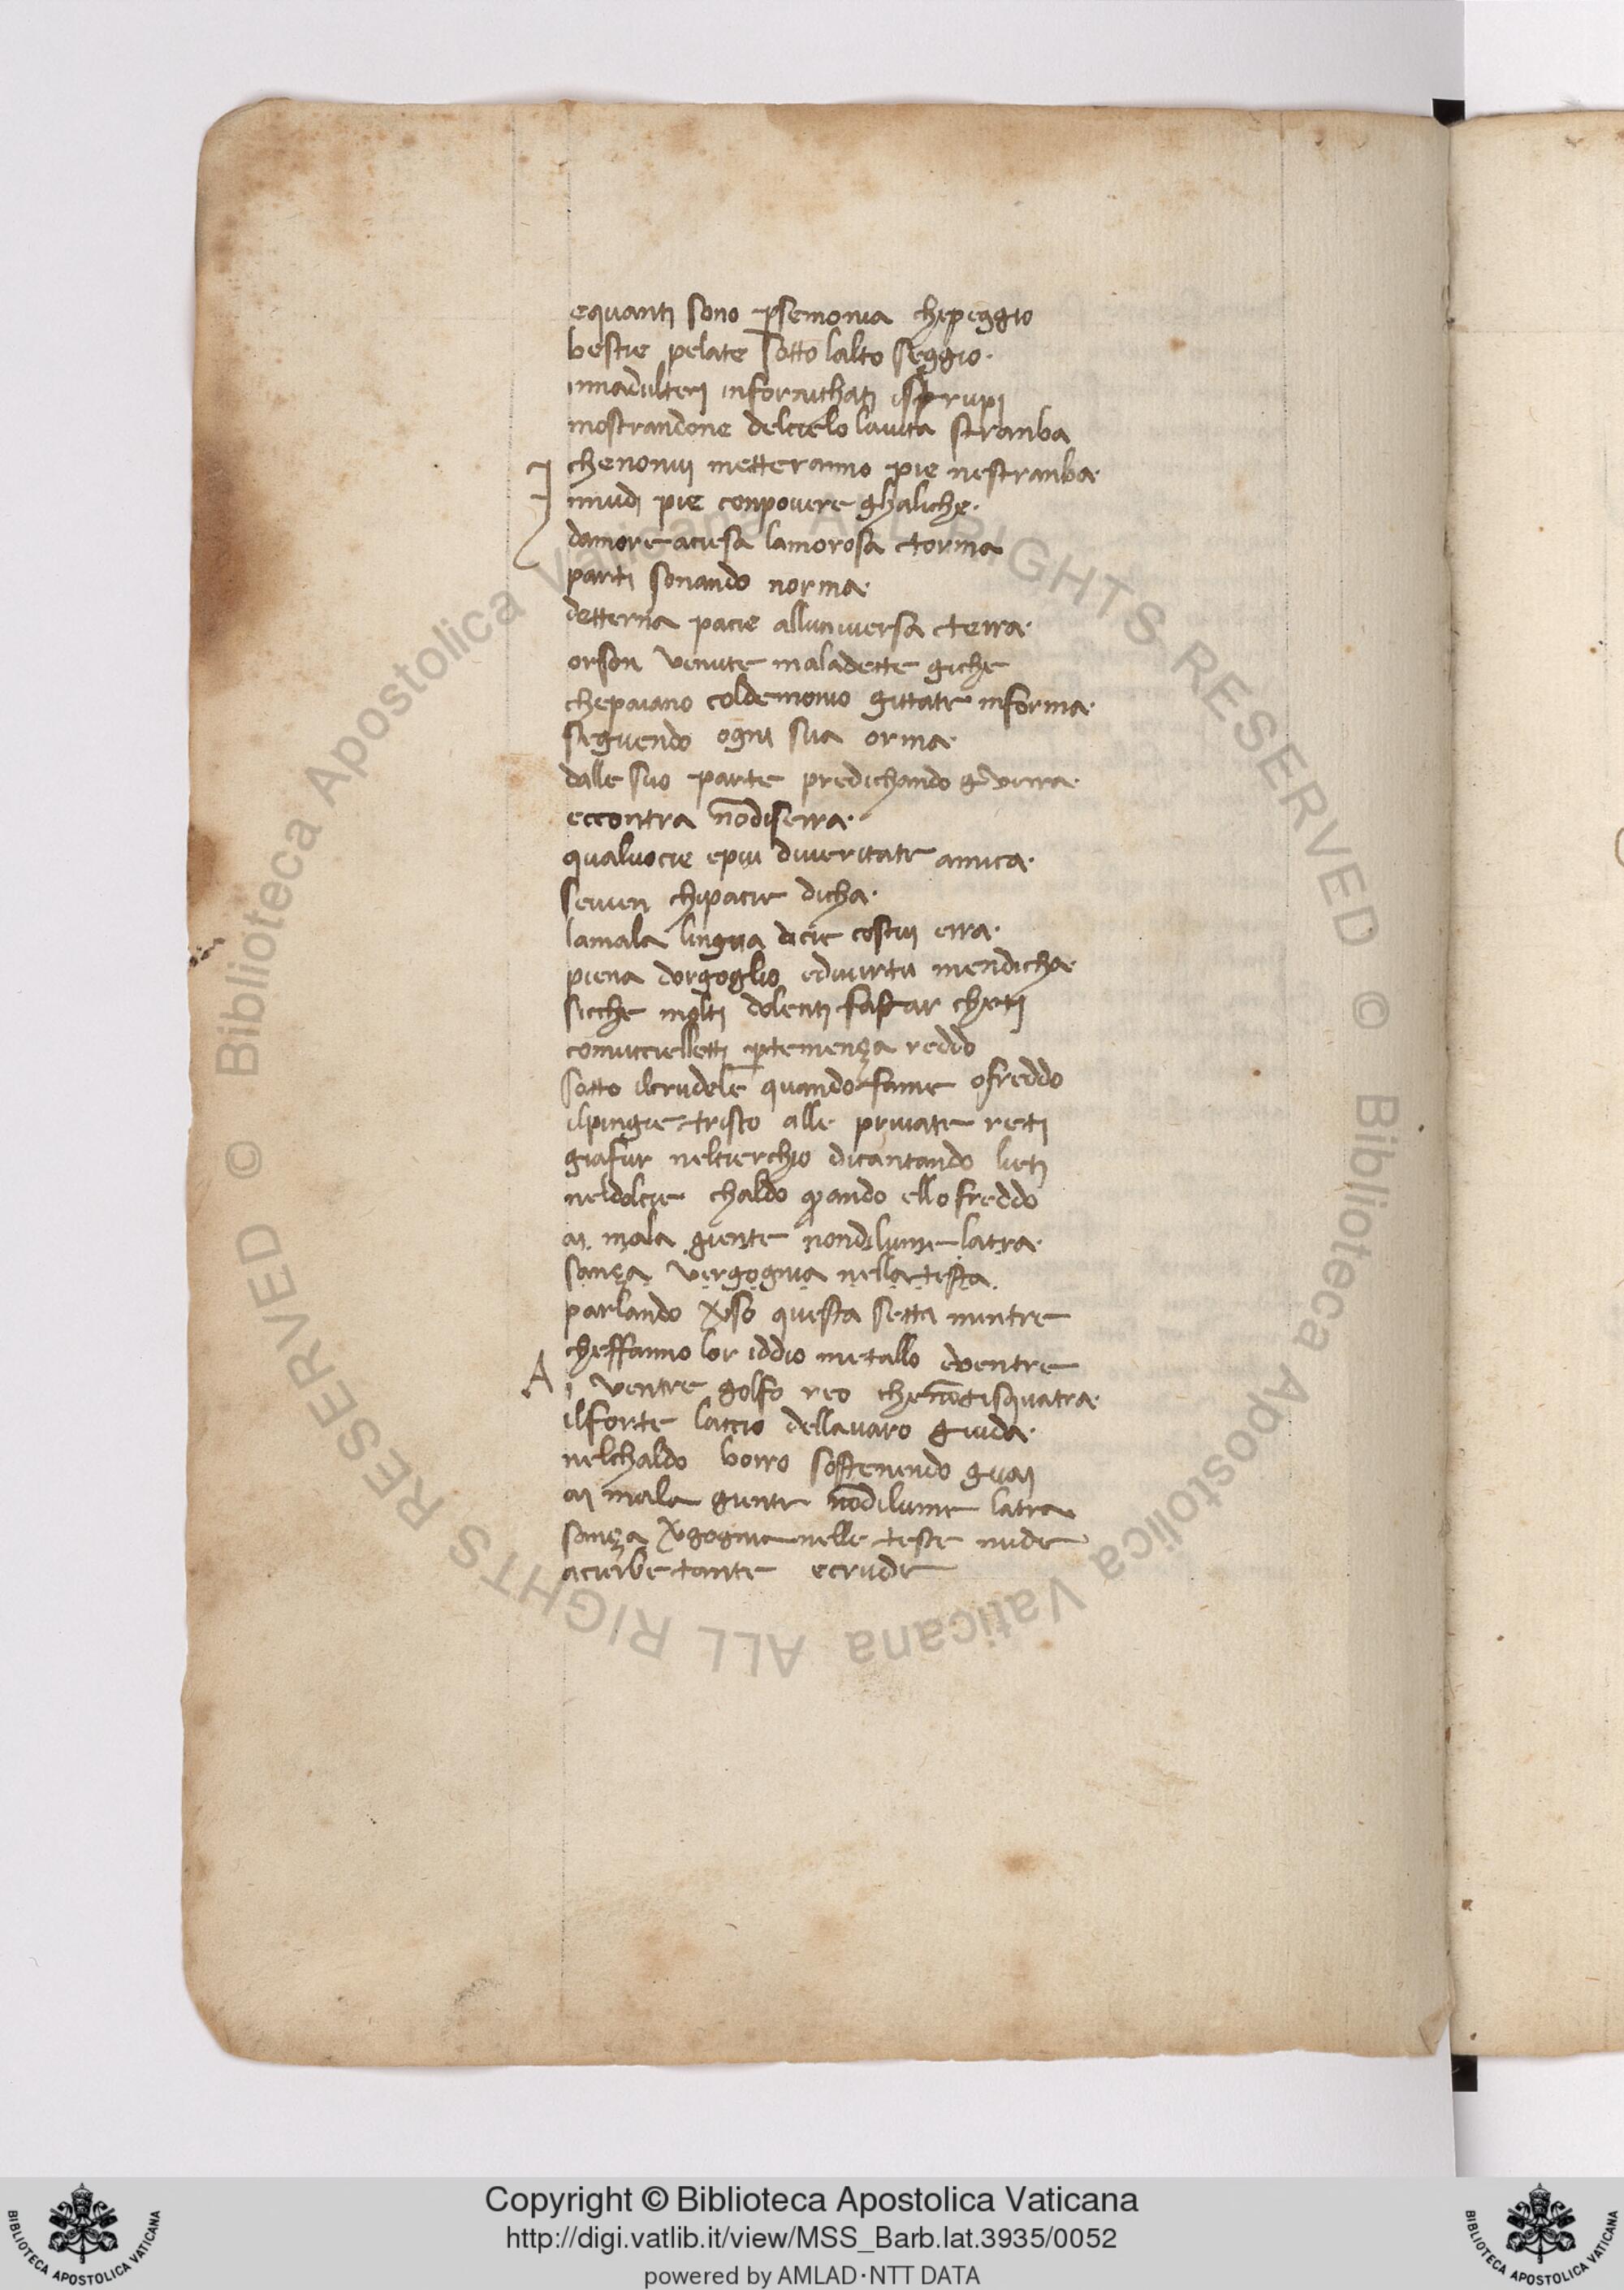 equanti sono ꝑsemonia chipeggio
bestie pelate sotto lalto seggio.
innadulteri infornichati istrupi
mostrandone delcielo lauita stranba
chenonui metteranno pie nestranba.
I nnudi pie conpouere ghaliche.
damore aciesa lamorosa torma
parti sonando norma.
detterna pacie alluniuersa terra.
orson venute maladette giche
chepaiano coldemonio gittate informa.
seguendo ogni sua orma.
dalle suo parte predichando
eccontra nōdiserra.
qualuocie epiu diueritate amica.
seiuen chipacie dicha.
lamala lingua dicie costui erra.
piena dorgoglio ediuirtu mendicha.
sicche molti dolenti fastar cheti
comuccielletti ꝑtemença reddo
sotto ilcrudele quando fame ofreddo
ilpingie tristo alle priuate reti
giafur nelcierchio dicantando lieti
neldolcie chaldo qando ello freddo
ai mala giente nondilume latra.
sança vergognia nella testa.
parlando ꝟso questa setta mintre
cheffanno lor iddio metallo euentre
A i ventre golfo reo chenōgisquatra.
ilforte laccio dellauaro giuda.
nelchaldo borro sostenendo guai
ai mala giente nōdilume latra
sança ꝟgognia nelle teste nude
acierbe tante ecrude
Copyright © Biblioteca Apostolica Vaticana
http://digi.vatlib.it/view/MSS_Barb.lat.3935/0052
powered by AMLAD·NTT DATA
BIBLIOTECA APOSTOLICA VATICANA
BIBLIOTECA APOSTOLICA VATICANA
© Biblioteca Apostolica Vaticana ALL RIGHTS RESERVED © Biblioteca Apostolica Vaticana ALL RIGHTS RESERVED